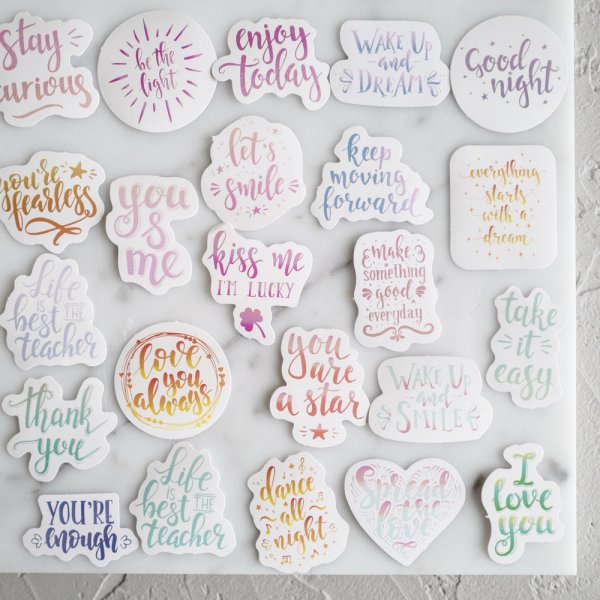 stay
curious
be the
light
enjoy
today
WAKE UP
and
DREAM
Good
night
you're
fearless
you
&
me
let's
smile
keep
moving
forward
everything
starts
with a
dream
Life
IS THE
best
teacher
kiss me
I'M LUCKY
make
something
good
everyday
take
it
easy
love
you
always
you
are
a star
WAKE UP
and
SMILE
thank
you
YOU'RE
enough
Life
IS THE
best
teacher
dance
all
night
Spread
the
love
I
love
you